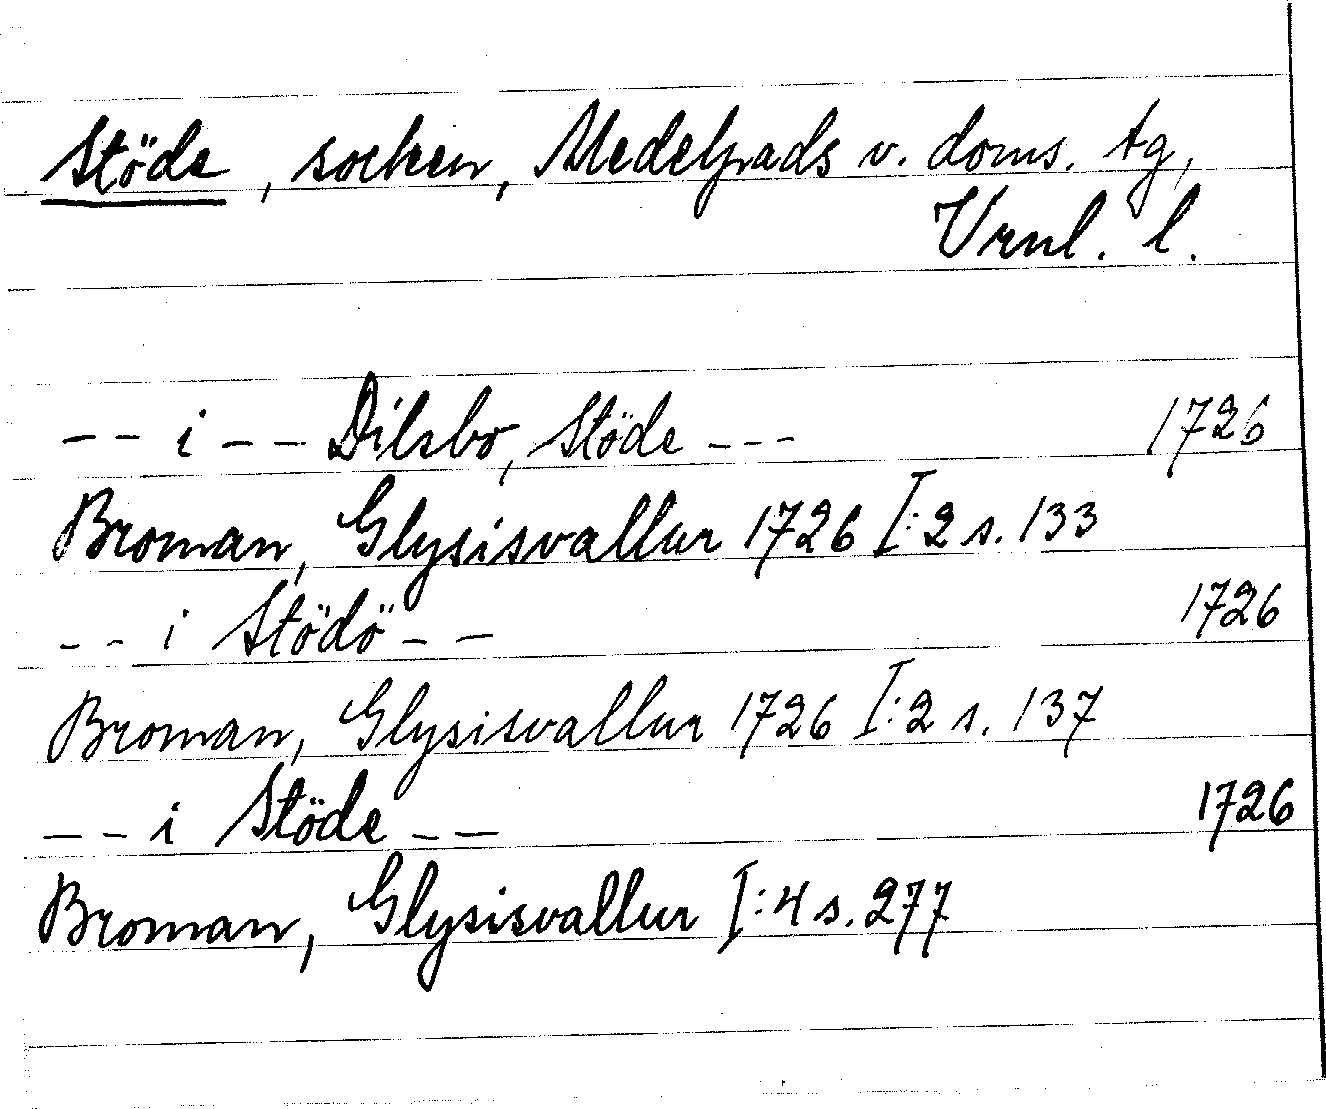 Stöde, socken, Medelpads v. doms. tg,
Vrnl. l.
-- i -- Dilsbo, Stöde --- 1726
Broman, Glysisvallur 1726 I:2 s. 133
-- i Stödö -- 1726
Broman, Glysisvallur 1726 I:2 s. 137
-- i Stöde -- 1726
Broman, Glysisvallur I:4 s. 277